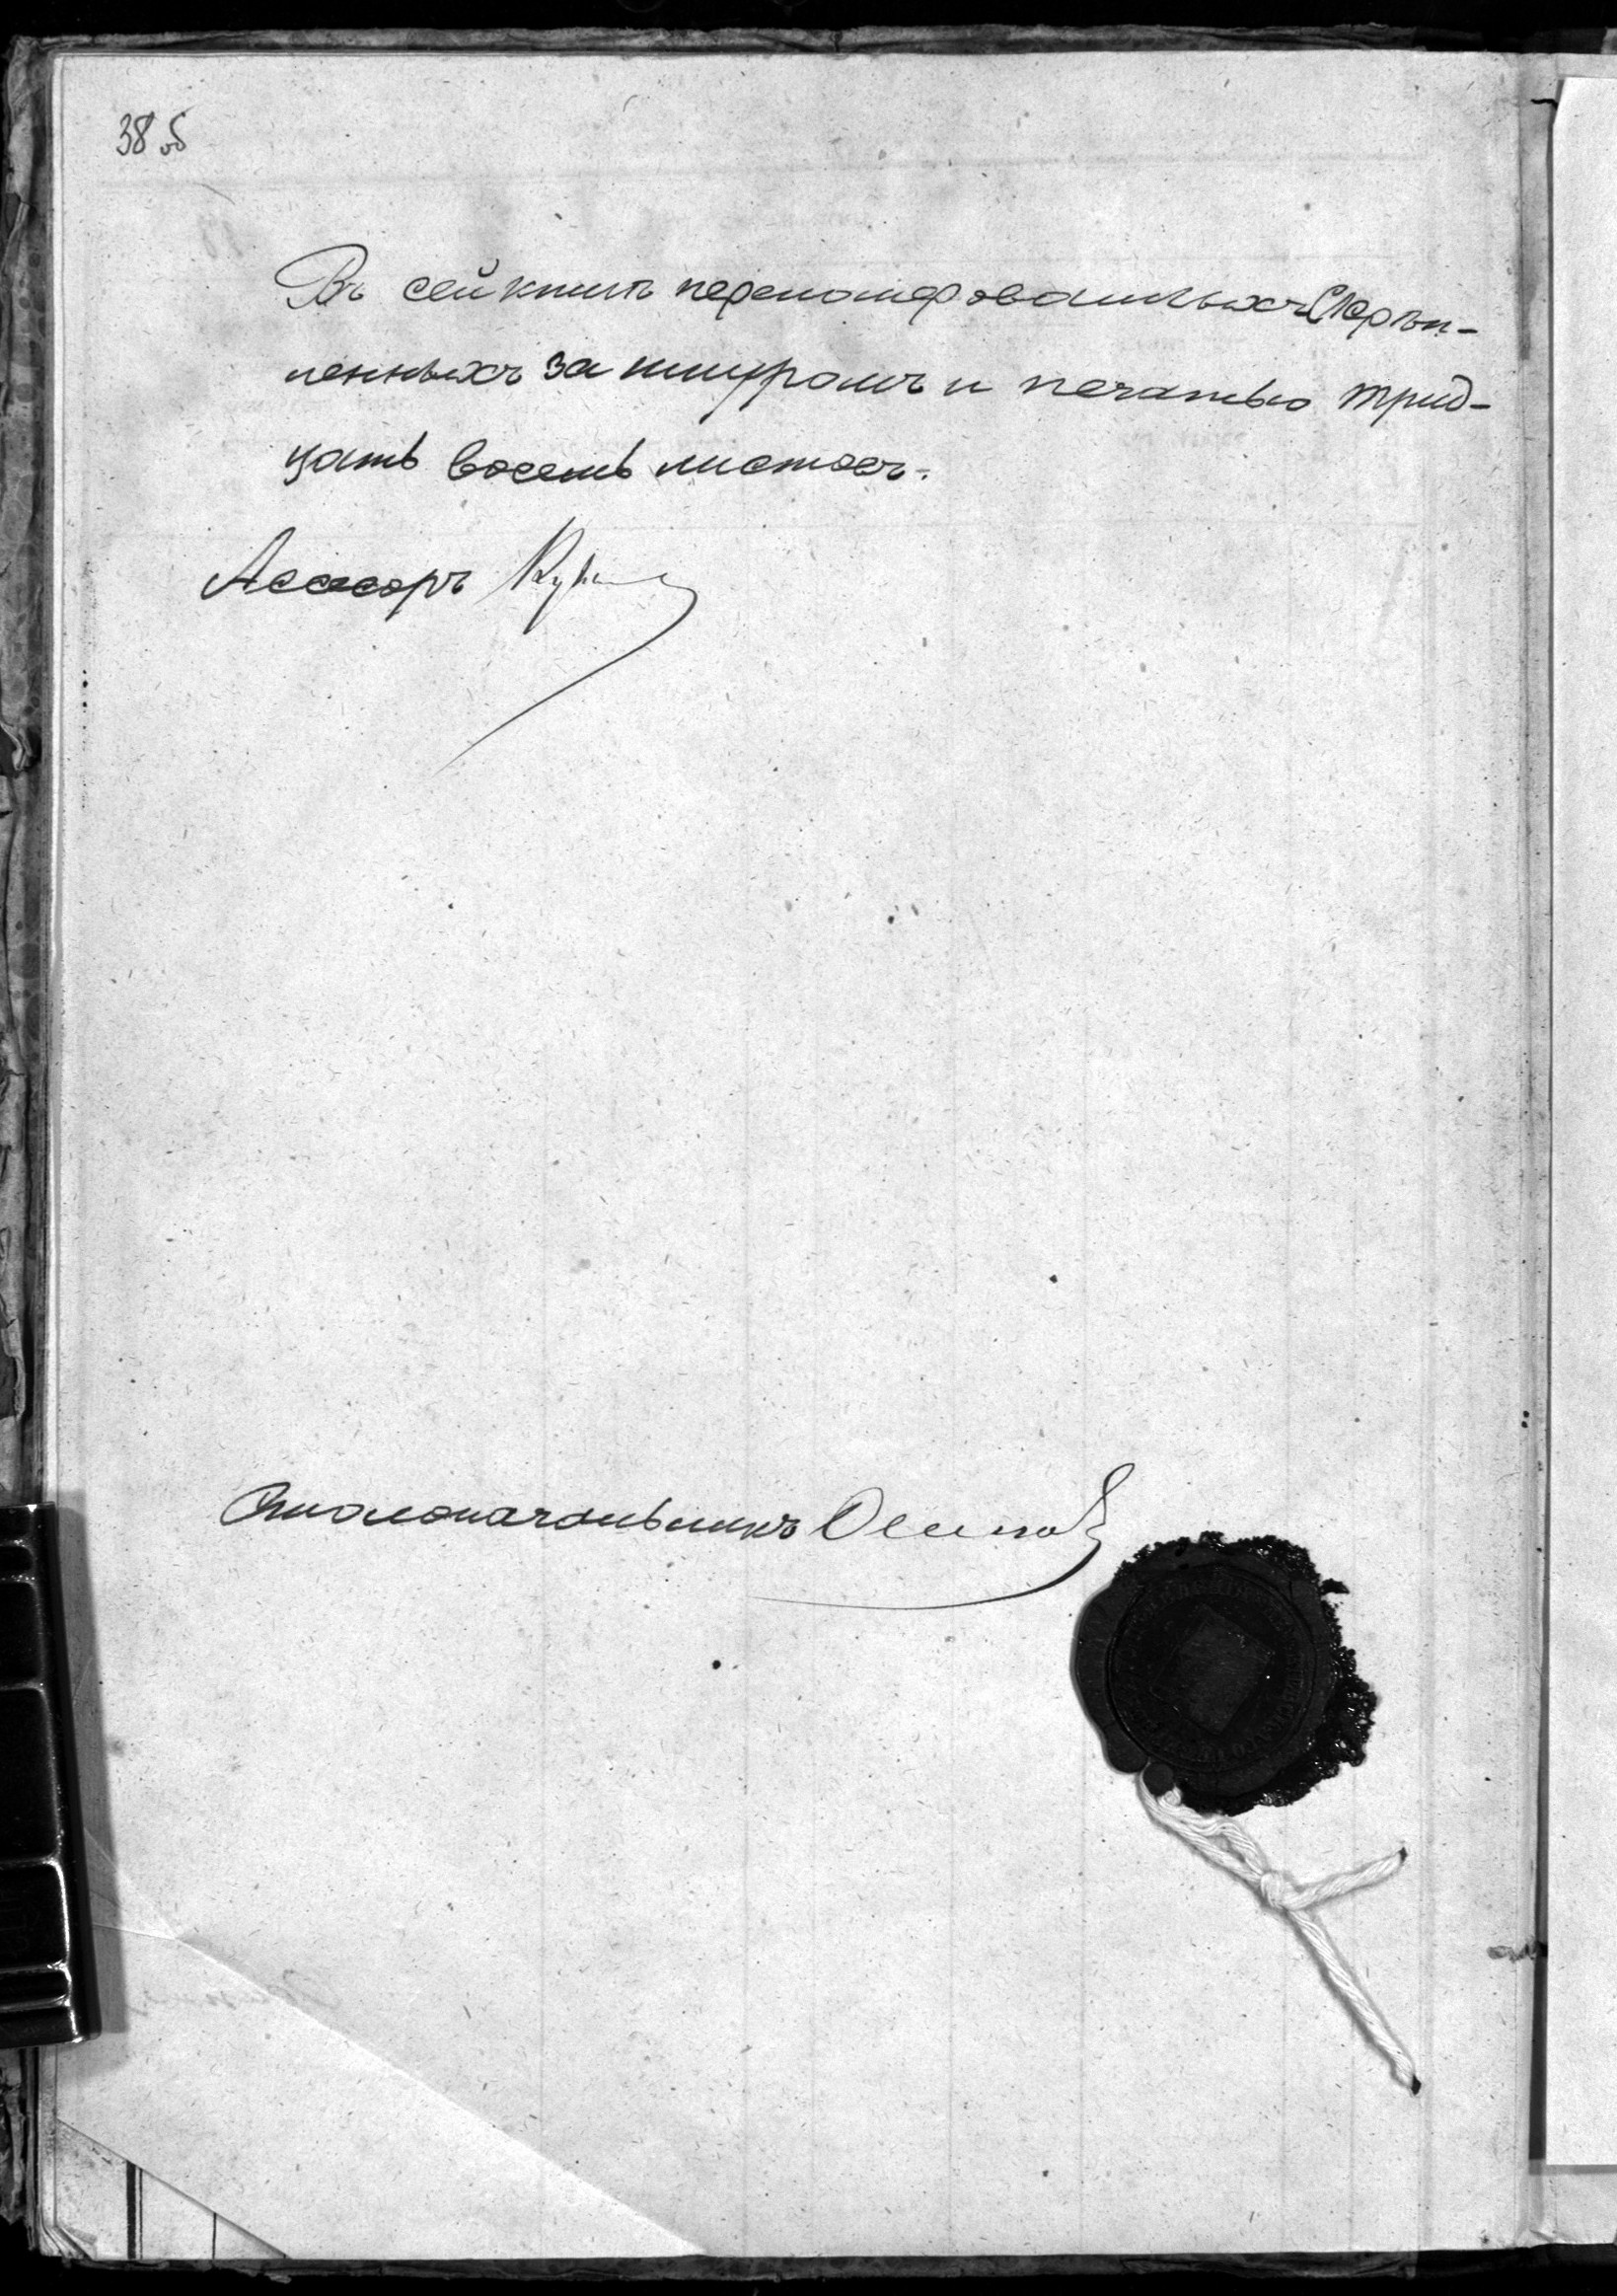 38 об
Въ сей книгѣ перенумерованныхъ, скрѣп-
ленныхъ за шнуромъ и печатью трид-
цать восемь листовъ.
Асессоръ
Столоначальникъ Осипов